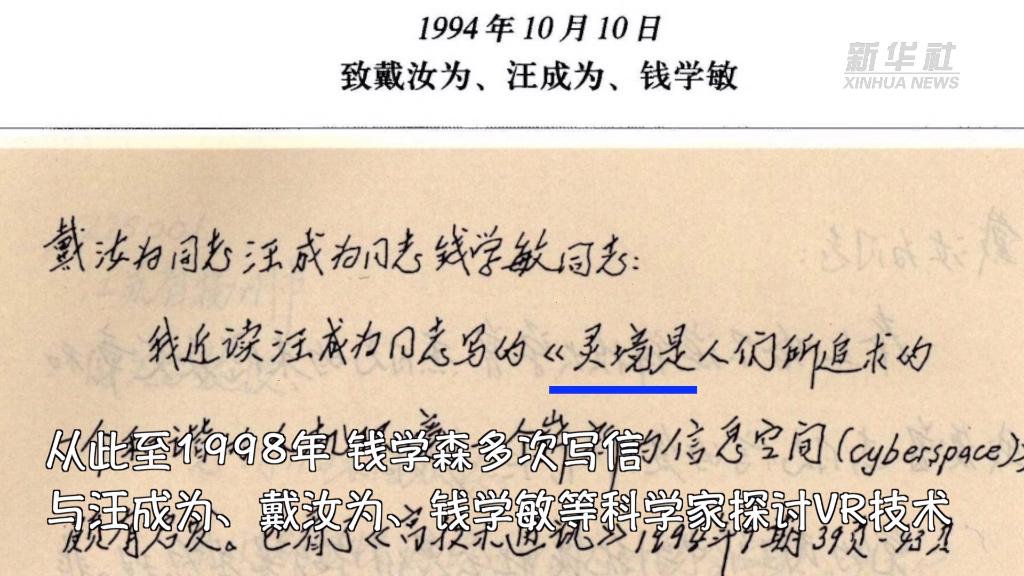 1994年10月10日
新华社
致戴汝为、汪成为、钱学敏
XINHUA NEWS
戴汝为同志汪成为同志钱学敏同志:
我近读汪成为同志写的《灵境是人们所追求的
一个 的信息空间(cyberspace)》
从此至1998年 钱学森多次写信
与汪成为、戴汝为、钱学敏等科学家探讨VR技术
颇有启发。也看了《高技术通讯》1994年9期39页-43页